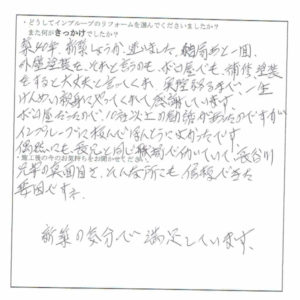 ・どうしてイングループのリフォームを選んでくださいましたか？
また何がきっかけでしたか？
築44年、新築しようか迷いました、結局あと一回、
外壁塗装を、それと言うのも、ボロ屋でも、補修、塗装
をすると大丈夫と言ってくれ、実際
けんめい親身にやってくれて感謝しています。
ボロ屋だったので、10社以上の勧誘があったのですが
イングループに頼んでほんとうによかったです。
偶然にも、長兄と同じ職場で働いていて、長谷川
・施工後の今のお気持ちをお聞かせください。
兄弟の真面目さ、そんな所にも信頼できた
要因です。
新築の気分で満足しています。